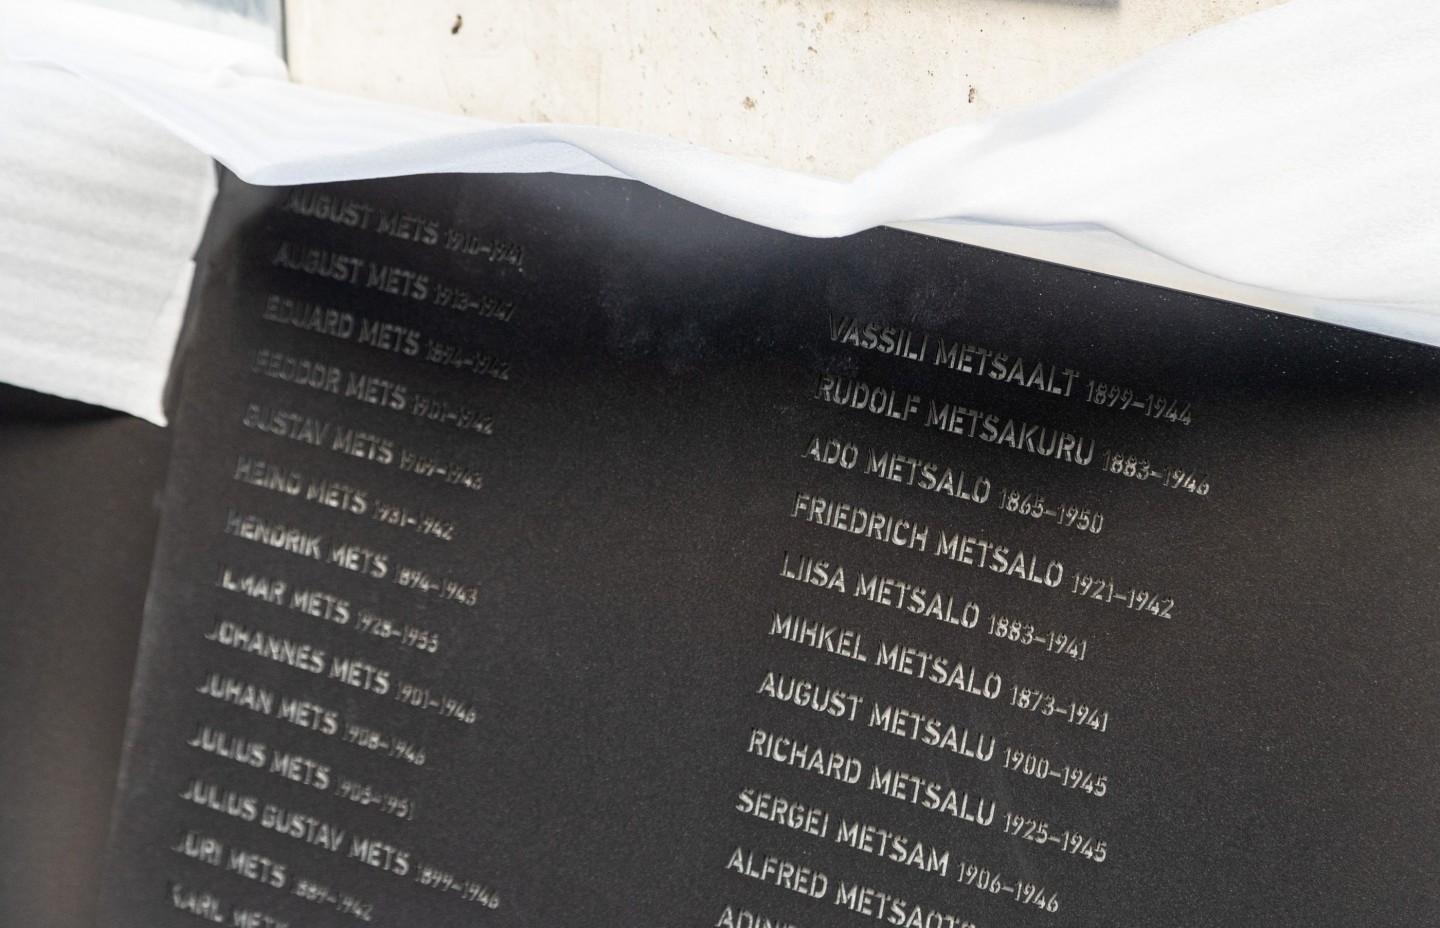 AUGUST METS 1910–1941
AUGUST METS 1913–1947
EDUARD METS 1894–1942
FEODOR METS 1901–1942
GUSTAV METS 1909–1943
HEINO METS 1931–1942
HENDRIK METS 1894–1943
ILMAR METS 1925–1955
JOHANNES METS 1901–1946
JUHAN METS 1908–1946
JULIUS METS 1905–1951
JULIUS GUSTAV METS 1899–1946
JÜRI METS 1889–1942
KARL METS
VASSILI METSAALT 1899–1944
RUDOLF METSAKURU 1883–1946
ADO METSALO 1865–1950
FRIEDRICH METSALO 1921–1942
LIISA METSALO 1883–1941
MIHKEL METSALO 1873–1941
AUGUST METSALU 1900–1945
RICHARD METSALU 1925–1945
SERGEI METSAM 1906–1946
ALFRED